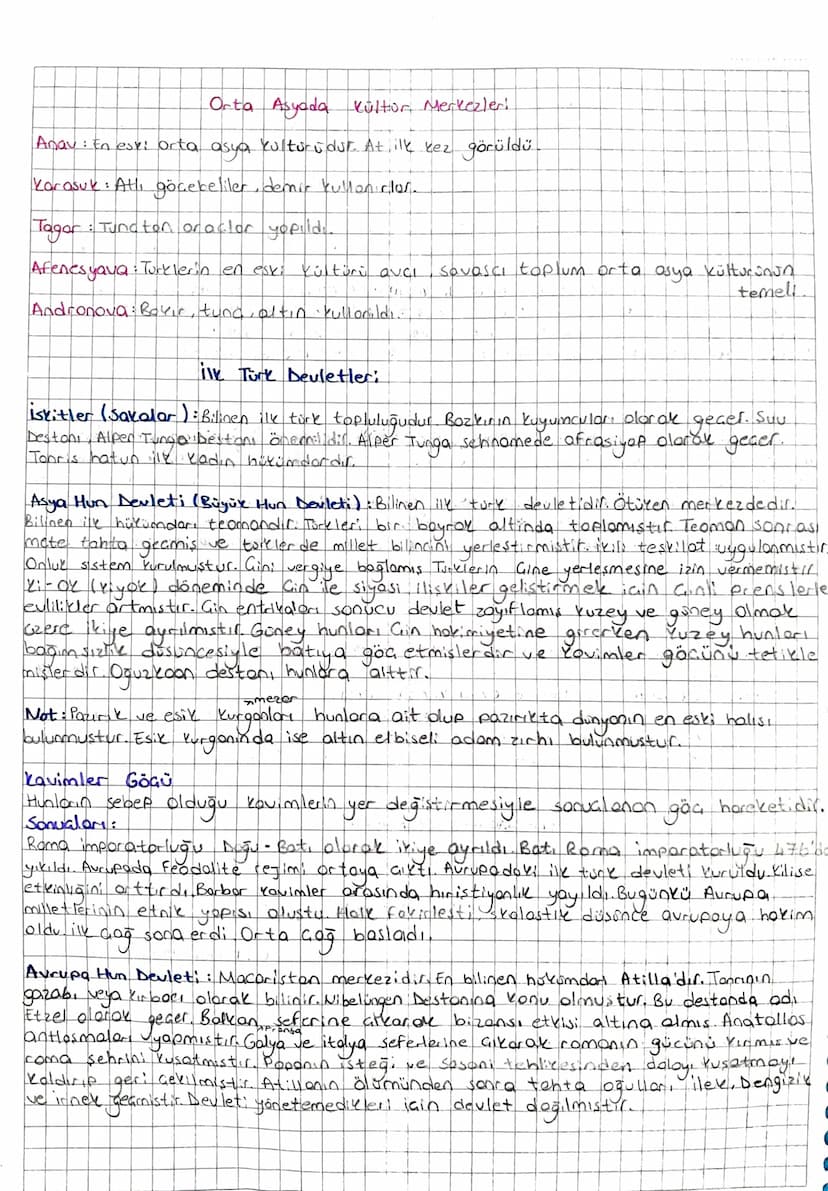 Orta Asyada Kültür Merkezleri
Anav : En eski orta asya kültürüdür. At ilk kez görüldü.
Karasuk : Atlı göçebeliler, demir kullanırlar.
Tagar : Tunçtan araçlar yapıldı.
Afenesyava : Türklerin en eski kültürü avcı, savaşcı toplum orta asya kültürünün
temeli.
Andronova : Bakır, tunç, altın kullanıldı.
İlk Türk Devletleri
İskitler (Sakalar) : Bilinen ilk türk topluluğudur. Bozkırın kuyumcuları olarak geçer. Şuu
Destanı, Alper Tunga Destanı önemlidir. Alper Tunga şehnamede afrasiyap olarak geçer.
Tomris hatun ilk kadın hükümdardır.
Asya Hun Devleti (Büyük Hun Devleti) : Bilinen ilk türk devletidir. Ötüken merkezdedir.
Bilinen ilk hükümdarı teomandır. Türkleri bir bayrak altında toplamıştır. Teoman sonrası
mete tahta geçmiş ve türklerde millet bilincini yerleştirmiştir. ikili teşkilat uygulanmıştır.
Onluk sistem kurulmuştur. Çini vergiye bağlamış Türklerin Çine yerleşmesine izin vermemiştir.
Ki-ok (kiyok) döneminde Çin ile siyasi ilişkiler geliştirmek için Çinli prenslerle
evlilikler artmıştır. Çin entrikaları sonucu devlet zayıflamış kuzey ve güney olmak
üzere ikiye ayrılmıştır. Güney hunları Çin hakimiyetine girerken kuzey hunları
bağımsızlık düşüncesiyle batıya göç etmişlerdir ve kavimler göçünü tetikle
mişlerdir. Oğuzkaan destanı hunlara aittir.
mezar
Not : Pazırık ve esik kurganları hunlara ait olup pazırıkta dünyanın en eski halısı
bulunmuştur. Esik kurganında ise altın elbiseli adam zırhı bulunmuştur.
Kavimler Göçü
Hunların sebep olduğu kavimlerin yer değiştirmesiyle sonuçlanan göç hareketidir.
Sonuçları :
Roma imparatorluğu Doğu - Batı olarak ikiye ayrıldı. Batı Roma imparatorluğu 476'da
yıkıldı. Avrupada Feodalite rejimi ortaya çıktı. Avrupadaki ilk türk devleti kuruldu. Kilise
etkinliğini arttırdı. Barbar kavimler arasında hıristiyanlık yayıldı. Bugünkü Avrupa
milletlerinin etnik yapısı oluştu. Halk fakirleşti, skolastik düşünce avrupaya hakim
oldu. ilk çağ sona erdi, Orta çağ başladı.
Avrupa Hun Devleti : Macaristan merkezidir. En bilinen hükümdarı Atilla'dır. Tanrının
gazabı veya kırbacı olarak bilinir. Nibelüngen Destanına konu olmuştur. Bu destanda adı
Etzel olarak geçer. Balkan seferine çıkarak bizansı etkisi altına almış. Anatolios
antlaşmaları yapmıştır. Galya ve italya seferlerine çıkarak romanın gücünü kırmış ve
roma şehrini kuşatmıştır. Papanın isteği ve sasani tehlikesinden dolayı kuşatmayı
kaldırıp geri çekilmiştir. Atillanın ölümünden sonra tahta oğulları ilek, Dengizik
ve irnek geçmiştir. Devleti yönetemedikleri için devlet dağılmıştır.